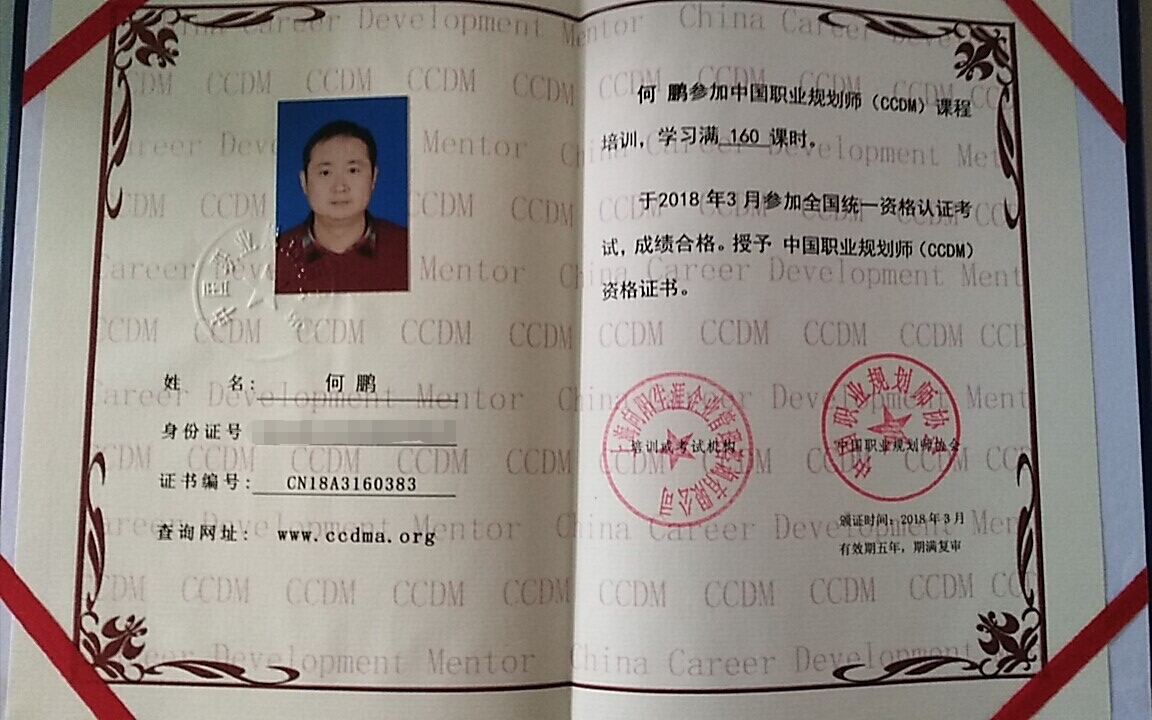 China Career Development Mentor
CCDM CCDM CCDM CCDM
姓 名: 何 鹏
身份证号
证书编号: CN18A3160383
查询网址: www.ccdma.org
何 鹏参加中国职业规划师（CCDM）课程
培训，学习满 160 课时。
于2018年3月参加全国统一资格认证考
试，成绩合格。授予 中国职业规划师（CCDM）
资格证书。
上海向阳生涯企业管理咨询有限公司
培训或考试机构
中国职业规划师协会
中国职业规划师协会
颁证时间：2018年3月
有效期五年，期满复审